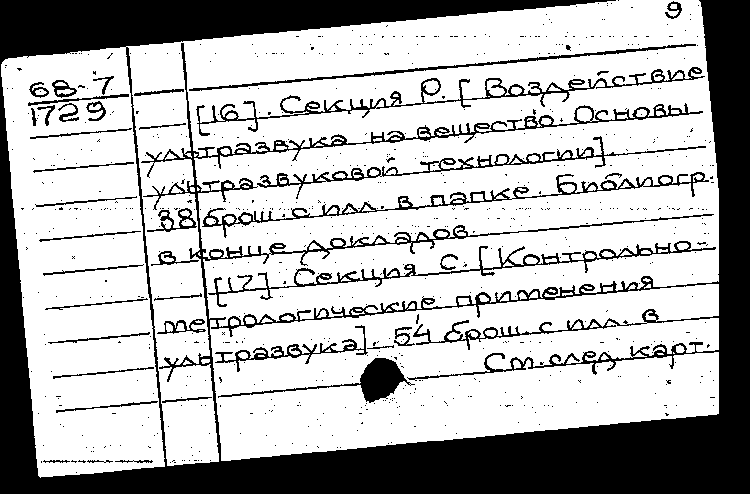 9
68-7
1729
[16]. Секция Р. [Воздействие
ультразвука на вещество. Основы
ультразвуковой технологии].
38 брош. с илл. в папке. Библиогр.
в конце докладов.
[17]. Секция С. [Контрольно-
метрологические применения
ультразвука]. 54 брош. с илл. в
См. след. карт.